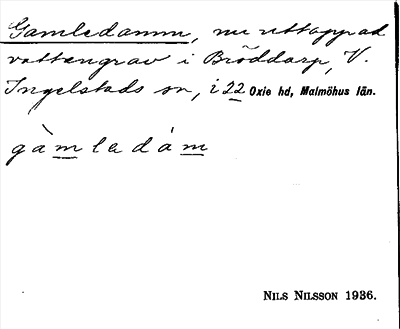 Gamledamm, nu uttappad
vattengrav i Bröddarp, V.
Ingelstads sn, i 22 Oxie hd, Malmöhus län.
gàmledám
NILS NILSSON 1936.